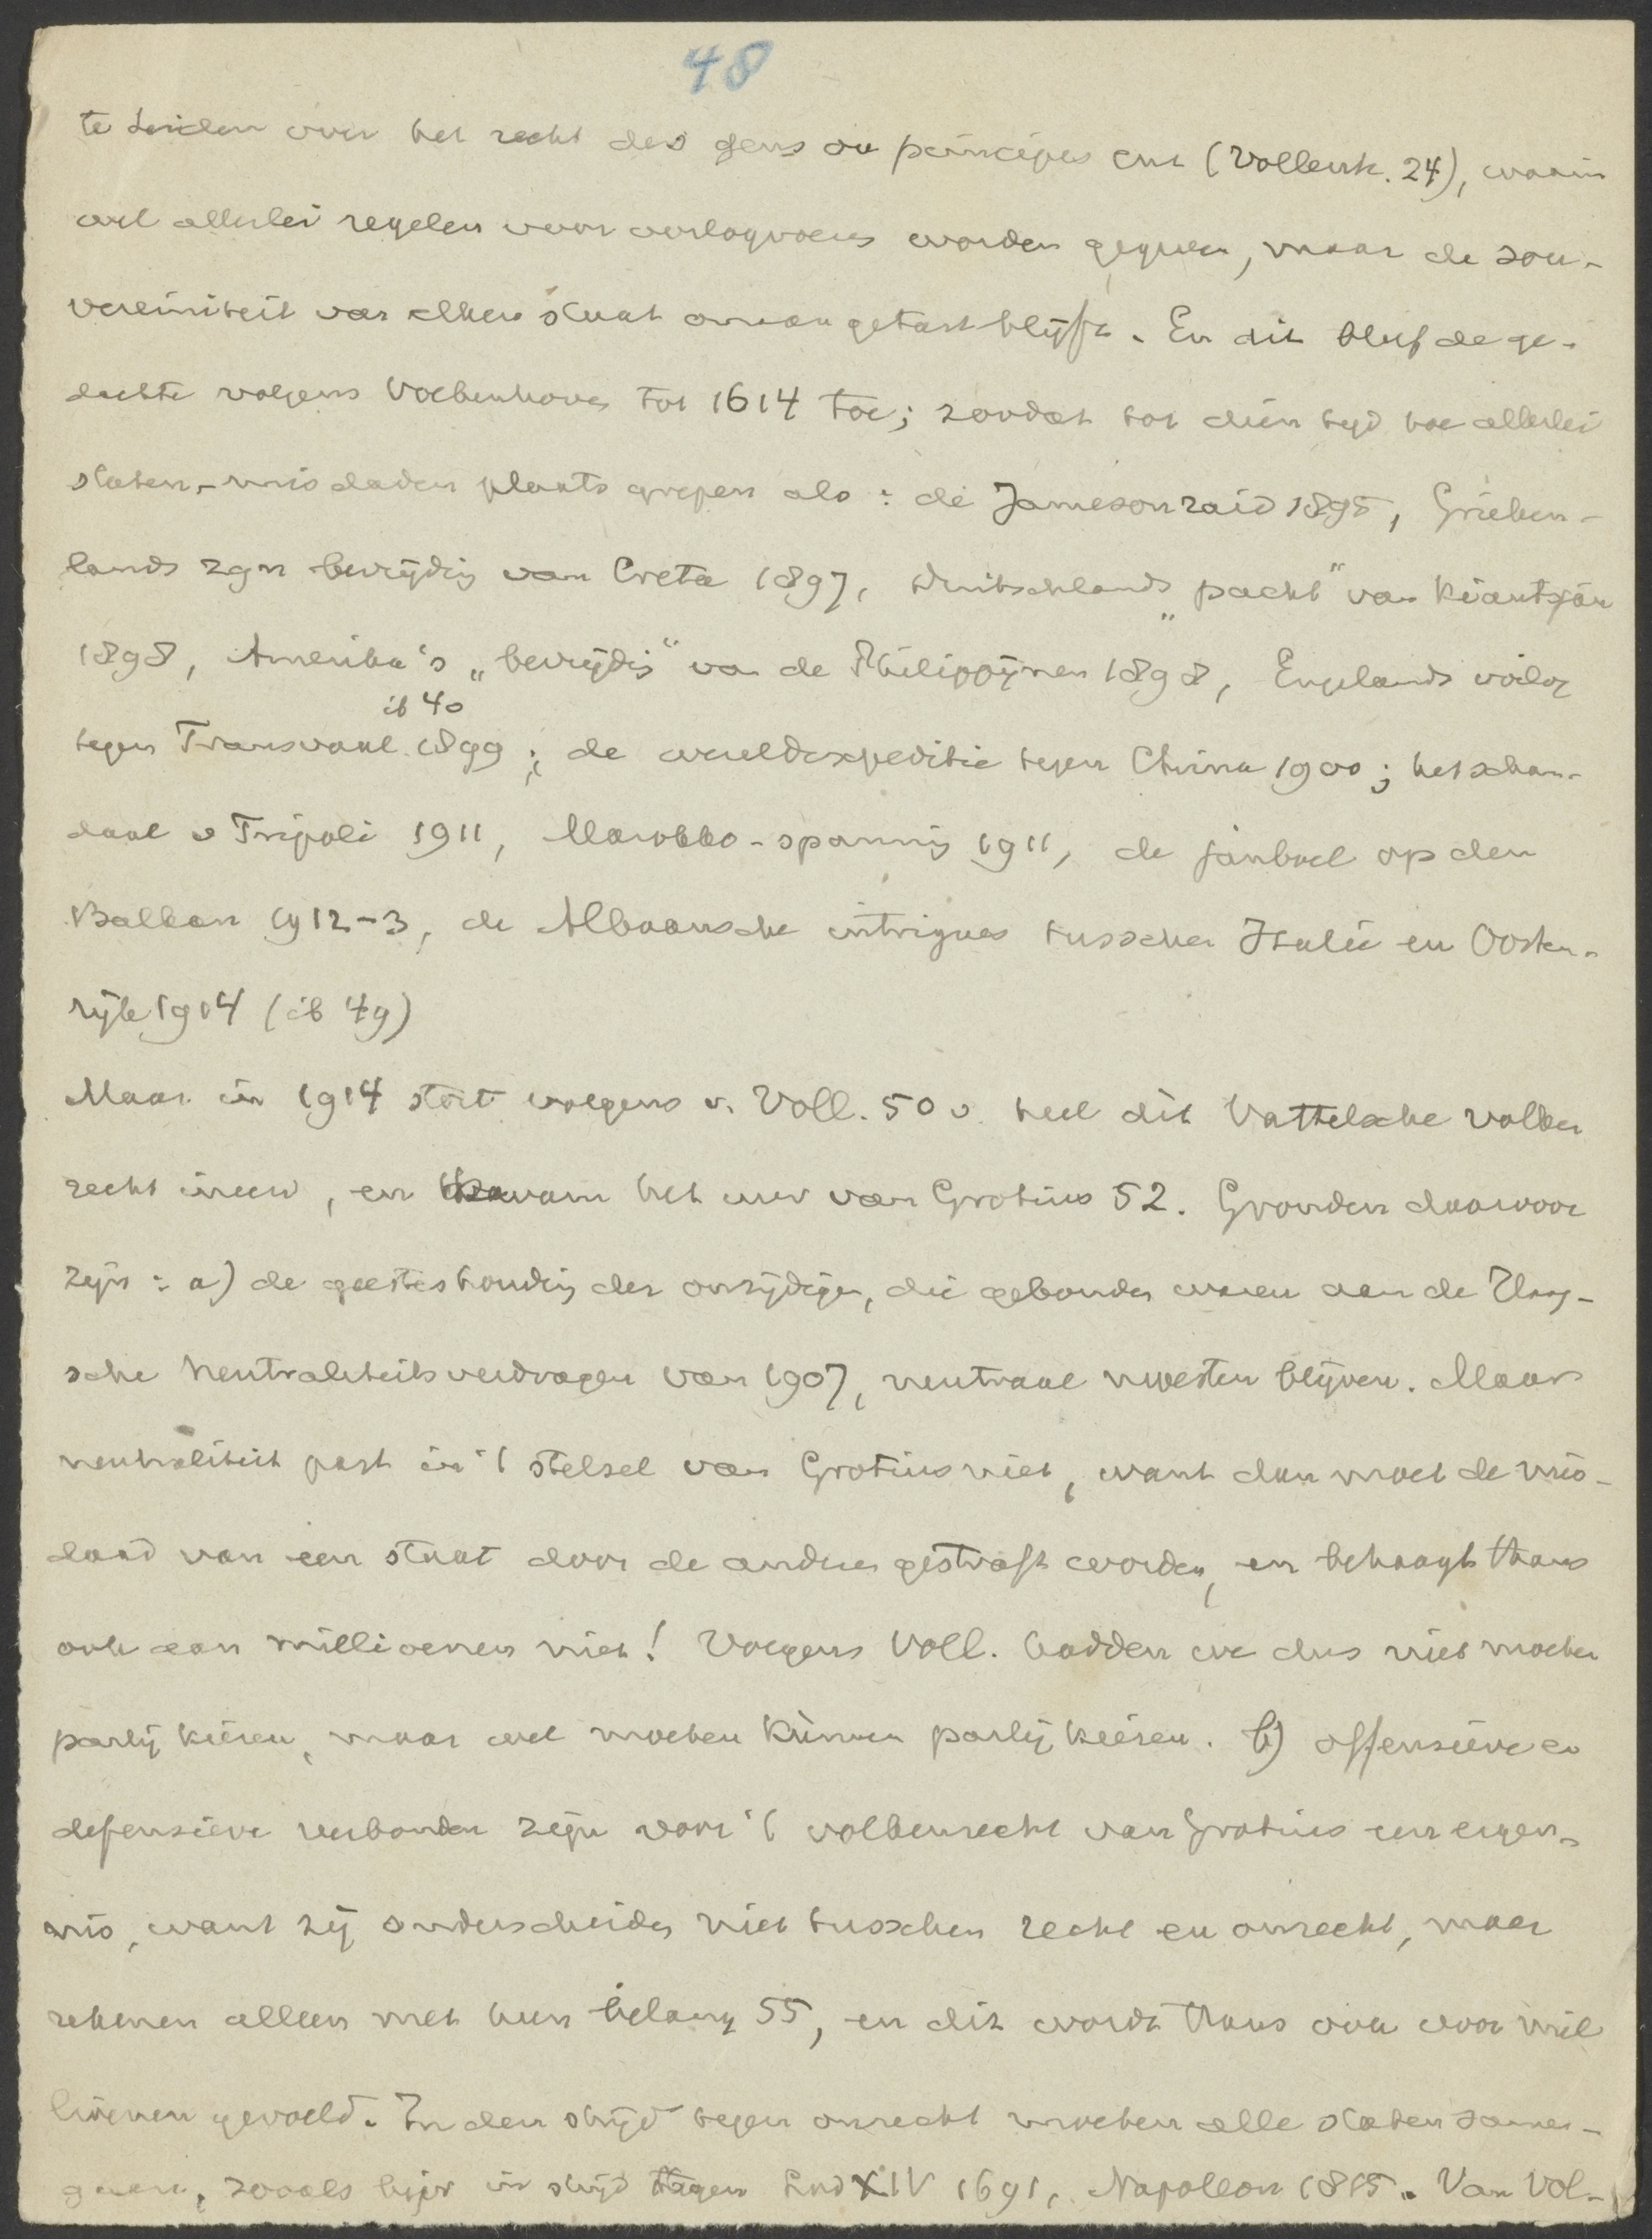 48
te Leiden over het recht des gens ou principes enz (Vollenh. 24), waarin
wel allerlei regelen voor oorlogvoeren worden gegeven, maar de sou-
vereiniteit van elken staat onaangetast blijft. En dit bleef de ge-
dachte volgens Vollenhoven tot 1614 toe; zoodat tot dien tijd toe allerlei
staten-misdaden plaats grepen als: de Jamesonraid 1895, Grieken-
lands zgn bevrijding van Creta 1897, Duitschlands „pacht" van Kiautsjau
1898, Amerika's „bevrijdig" van de Philippijnen 1898, Engelands oorlog
ib 40
tegen Transvaal 1899; de wereldexpeditie tegen China 1900; het schan-
daal v Tripoli 1911, Marokko-spanning 1911, de janboel op den
Balkan 1912-3, de Albaansche intrigues tusschen Italië en Oosten-
rijk 1914 (ib 49)
Maar in 1914 stort volgens v. Voll. 50 v. heel dit Vattelsche volken
recht ineen, en kwam het uur van Grotius 52. Gronden daarvoor
zijn: a) de geesteshouding der onzijdigen, die gebonden waren aan de Haag-
sche Neutraliteitsverdragen van 1907, neutraal moesten blijven. Maar
neutraliteit past in 't stelsel van Grotius niet, want dan moet de mis-
daad van een staat door de andren gestraft worden, en behaagt thans
ook aan millioenen niet! Volgens Voll. hadden we dus niet moeten
partij kiezen, maar wel moeten kùnnen partij kiezen. b) offensieve en
defensieve verbonden zijn voor 't volkenrecht van Grotius een erger-
nis, want zij onderscheiden niet tusschen recht en onrecht, maar
rekenen alleen met hun belang 55, en dit wordt thans ook door mil
lioenen gevoeld. In den strijd tegen onrecht moeten alle staten samen-
gaan, zooals bijv in strijd tegen Lod XIV 1691, Napoleon 1815. Van Vol-